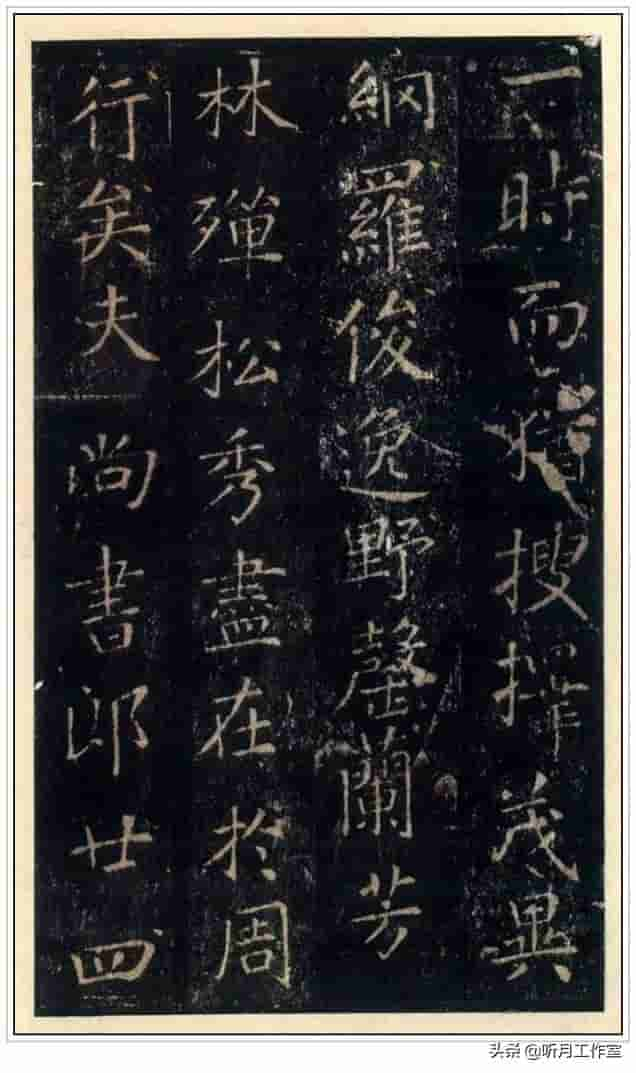 一時而猶搜擢茂異
網羅俊逸野罄蘭芳
林殫松秀盡在於周
行矣夫尚書郎廿四
头条 @听月工作室